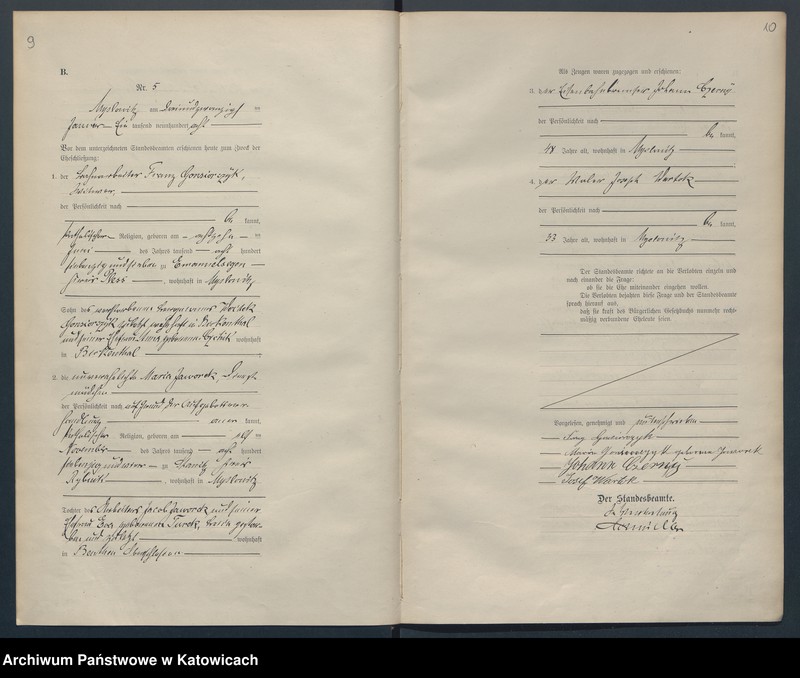 9
B.
Nr. 5
Myslowitz, am dreiundzwanzig ten
Januar Ein tausend neunhundert acht
Vor dem unterzeichneten Standesbeamten erschienen heute zum Zweck der
Eheschließung:
1. der Franz Gonsiorczyk,
der Persönlichkeit nach
be kannt,
katholischer Religion, geboren am achtzehn ten
Juni des Jahres tausend acht hundert
siebenzig und sieben zu Emanuelssegen
Kreis Pless, wohnhaft in Myslowitz
Sohn des verstorbenen
Gonsiorczyk zuletzt wohnhaft in Birkenthal
und seiner Ehefrau geborenen wohnhaft
in Birkenthal
2. die unverehelichte Maria Jaworek, Dienst-
mädchen
der Persönlichkeit nach auf Grund der Aufgebotsver-
handlung aner kannt,
katholischer Religion, geboren am elf ten
November des Jahres tausend acht hundert
siebenzig und vier zu Kreis
Rybnik, wohnhaft in Myslowitz
Tochter des Arbeiters Jacob Jaworek und seiner
Ehefrau Eva geborenen Turek, beide verstor-
ben und zuletzt wohnhaft
in Beuthen Oberschlesien
10
Als Zeugen waren zugezogen und erschienen:
3. der Johann Czerny
der Persönlichkeit nach
be kannt,
48 Jahre alt, wohnhaft in Myslowitz
4. der Maler Joseph Wartok
der Persönlichkeit nach
be kannt,
33 Jahre alt, wohnhaft in Myslowitz
Der Standesbeamte richtete an die Verlobten einzeln und
nach einander die Frage:
ob sie die Ehe miteinander eingehen wollen.
Die Verlobten bejahten diese Frage und der Standesbeamte
sprach hierauf aus,
daß sie kraft des Bürgerlichen Gesetzbuchs nunmehr recht-
mäßig verbundene Eheleute seien.
Vorgelesen, genehmigt und unterschrieben
Franz Gonsiorczyk
Maria Gonsiorczyk geborene Jaworek
Johann Czerny
Josef Wartok
Der Standesbeamte.
In Vertretung
Archiwum Państwowe w Katowicach